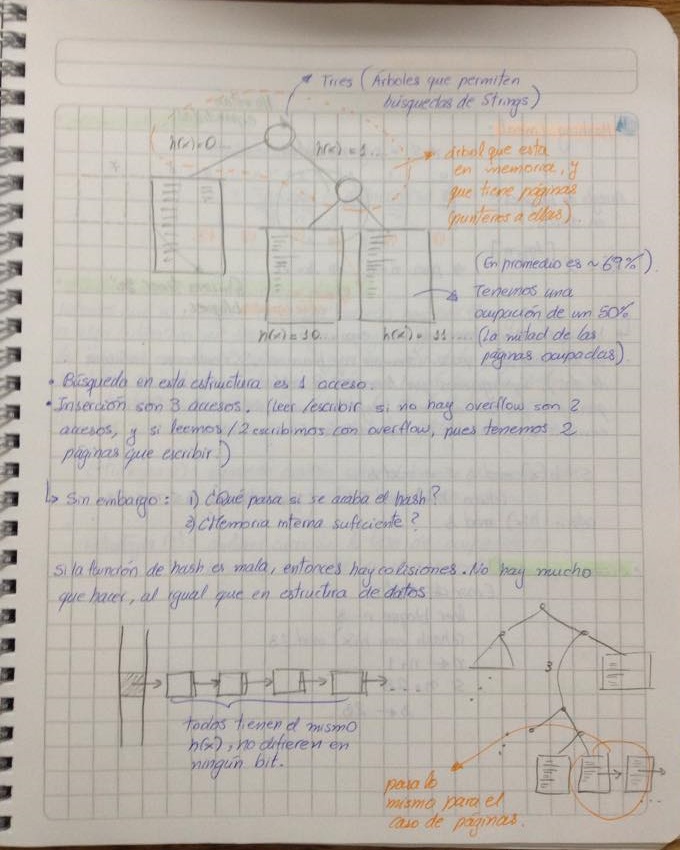 Tries (Árboles que permiten
búsquedas de Strings)
h(x)=0...
h(x)=1...
árbol que esta
en memoria, y
que tiene páginas
(punteros a ellas).
(En promedio es ~69%).
Tenemos una
ocupación de un 50%
(la mitad de las
páginas ocupadas).
h(x)=10...
h(x)=11...
• Búsqueda en esta estructura es 1 acceso.
• Inserción son 3 accesos. (leer/escribir si no hay overflow son 2
accesos, y si leemos/2 escribimos con overflow, pues tenemos 2
páginas que escribir.)
↳ Sin embargo: 1) ¿Qué pasa si se acaba el hash?
2) ¿Memoria interna suficiente?
Si la función de hash es mala, entonces hay colisiones. No hay mucho
que hacer, al igual que en estructura de datos
3
todos tienen el mismo
h(x), no difieren en
ningún bit.
pasa lo
mismo para el
caso de páginas.